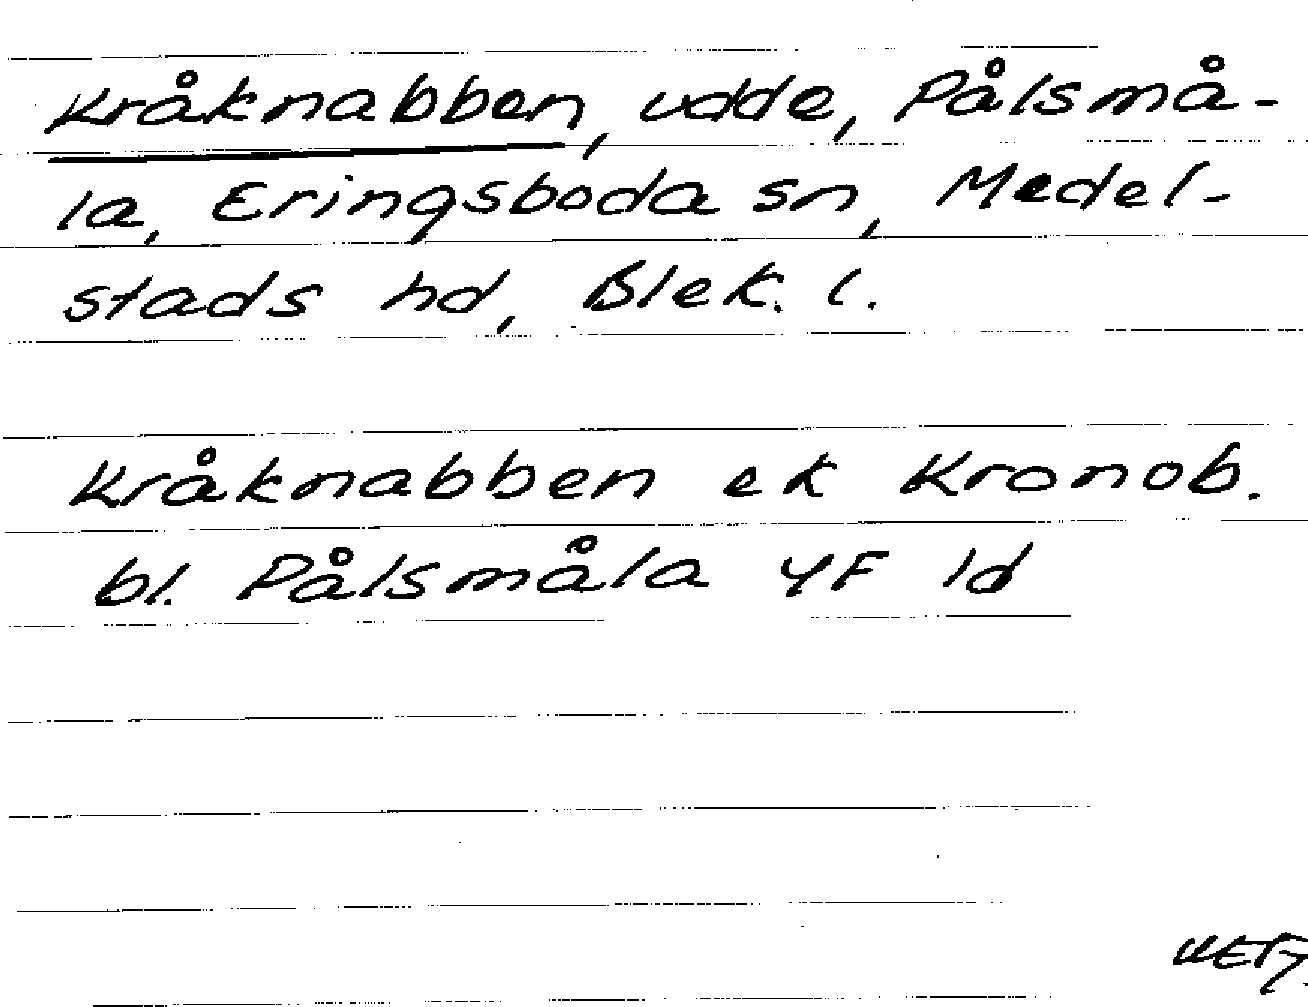 Kråknabben, udde, Pålsmå-
la, Eringsboda sn, Medel-
stads hd, Blek. l.
Kråknabben ek Kronob.
bl. Pålsmåla 4F 1d